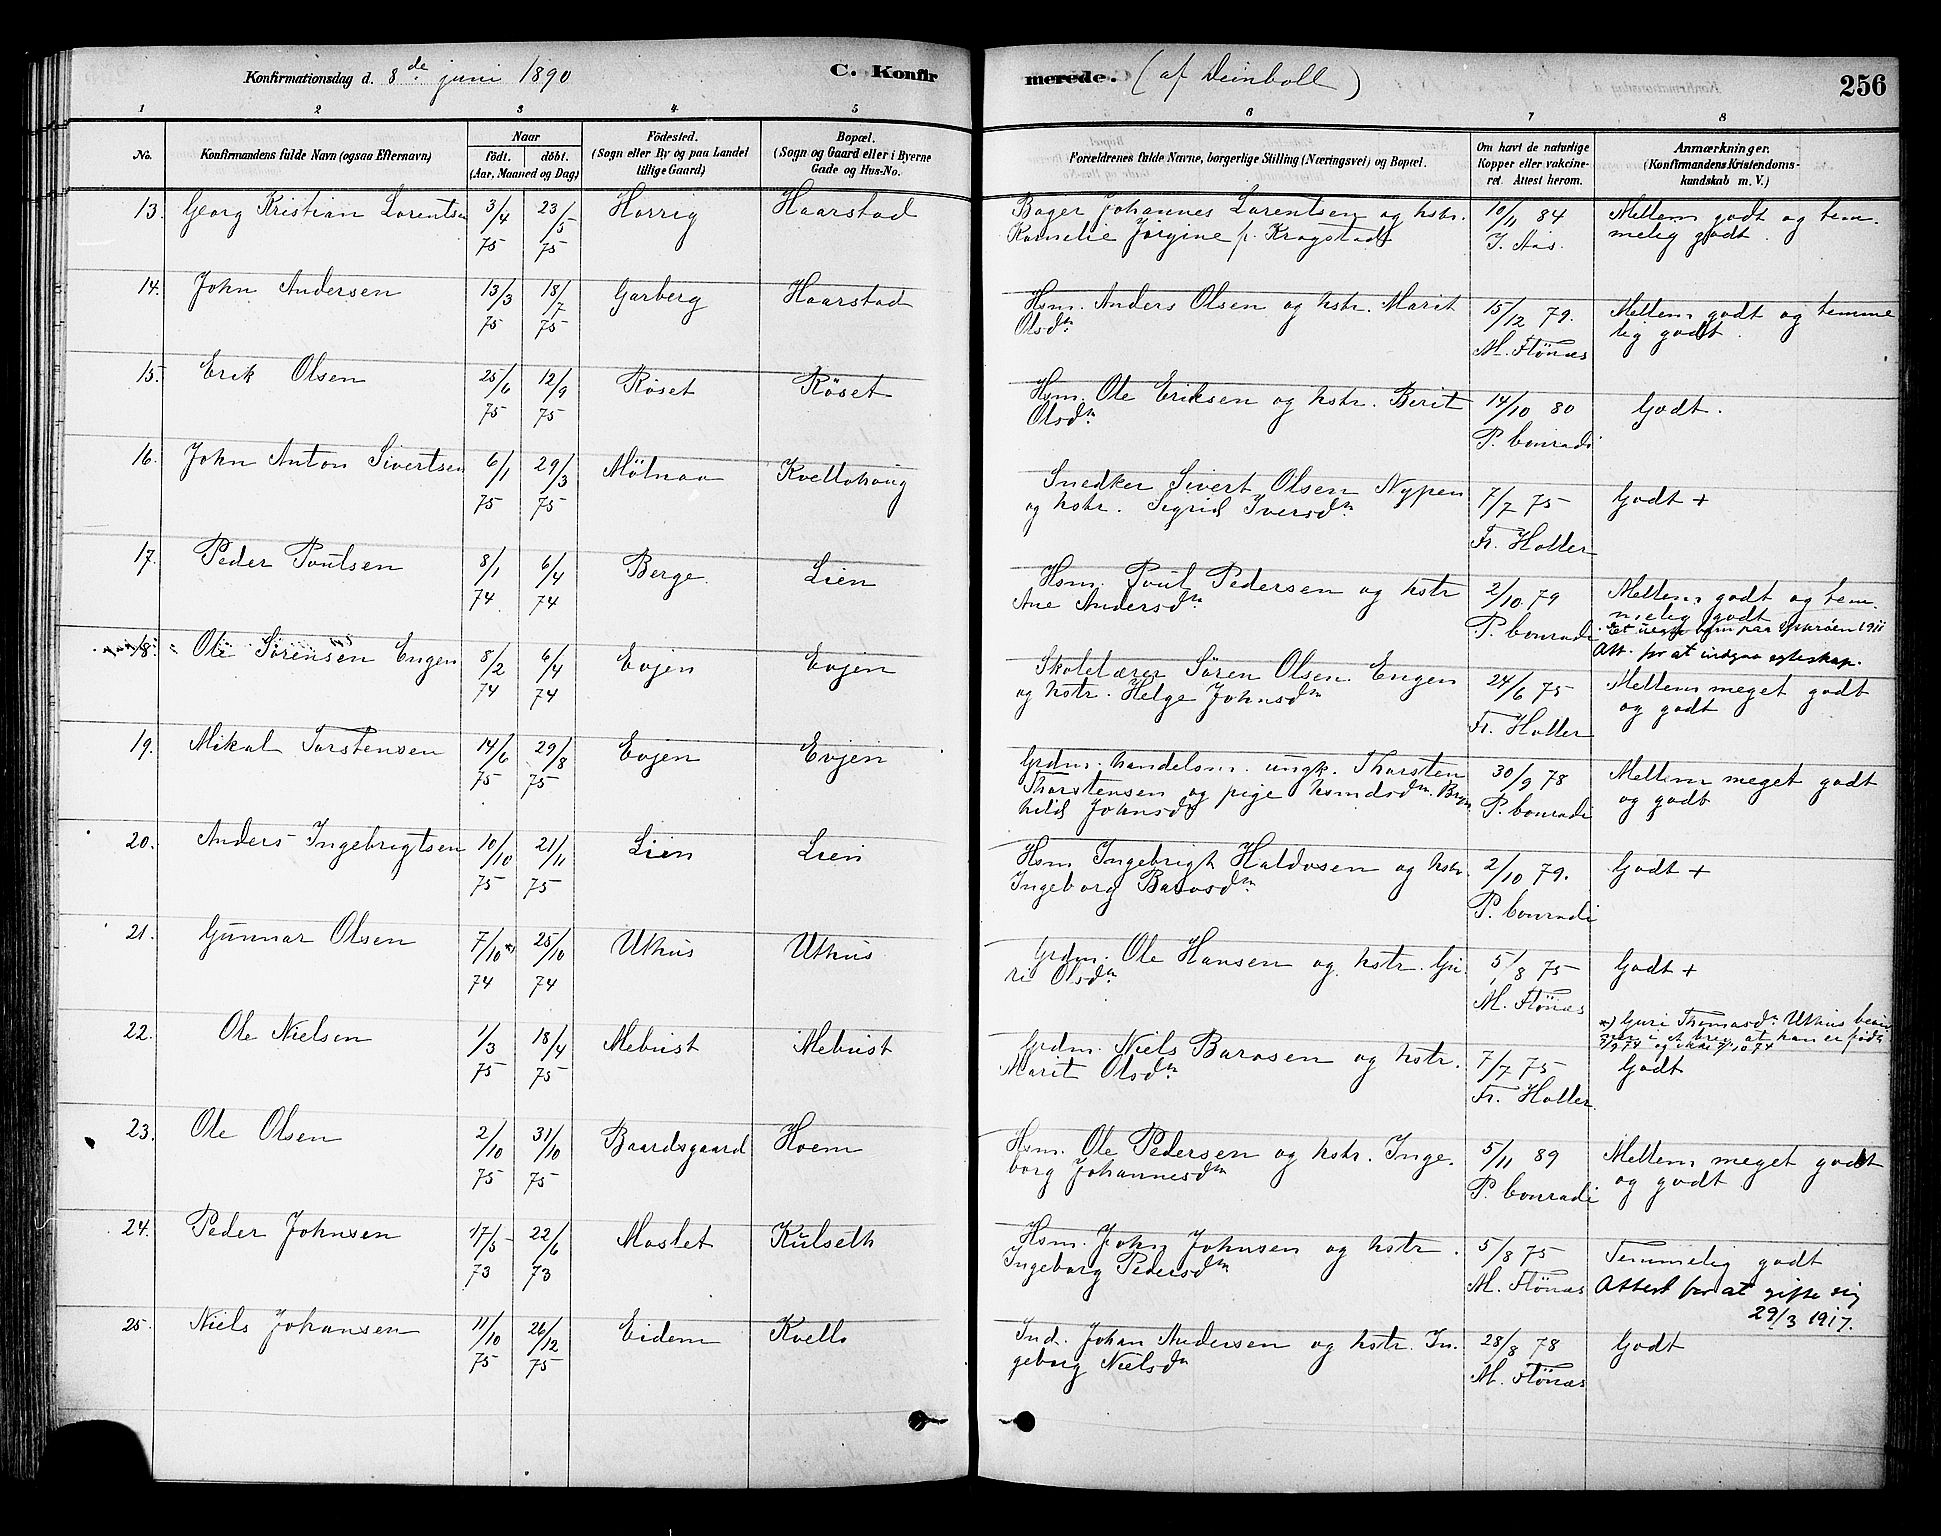 Konfirmationsdag d. 8de juni 1890
C. Konfirmerede. (af Deinboll)
256
1 2 3 4 5 6 7 8
No.
Konfirmandens fulde Navn (ogsaa Efternavn)
Naar
født. døbt.
(Aar, Maaned og Dag)
Fødested.
(Sogn eller By og paa Landet
tillige Gaard)
Bopæl.
(Sogn og Gaard eller i Byerne
Gade og Hus-No.
Forældrenes fulde Navne, borgerlige Stilling (Næringsvei) og Bopæl.
Om havt de naturlige
Kopper eller vakcine-
ret. Attest herom.
Anmærkninger.
(Konfirmandens Kristendoms-
kundskab m. V.)
13. Georg Kristian Lorentsen 3/4 75 23/5 75 Horrig Haarstad Bager Johannes Lorentsen og hstr. 10/11 84 Mellem godt og tem-
Kornelie Jørgine f. Kragstad J. Aas. melig godt.
14. John Andersen 13/3 75 18/7 75 Garberg Haarstad Hsm. Anders Olsen og hstr. Marit 15/12 79. Mellem godt og temme
Olsdn M. Flönæs lig godt.
15. Erik Olsen 25/6 75 12/9 75 Røset Røset Hsm. Ole Eriksen og hstr. Berit 14/10 80 Godt.
Olsdn P. Conradi
16. John Anton Sivertsen 6/1 75 29/3 75 Mölnaa Kvellohoug Snedker Sivert Olsen Nypen 7/7 75 Godt +
og hstr. Sigrid Iversdn Fr. Holler
17. Peder Poulsen 8/1 74. 6/4 74 Berge. Lien Hsm. Poul Pedersen og hstr 2/10 79 Mellem godt og tem-
Ane Andersdn P. Conradi melig godt
18. Ole Sørensen Engen 8/2 74 6/4 74 Evjen Evjen Skolelærer Sören Olsen Engen 24/6 75 Att. for at indgaa egteskap.
og hstr. Helge Johnsdn Fr. Holler Mellem meget godt
og godt
19. Mikal Torstensen 14/6 75 29/8 75 Evjen Evjen Grdm. handelsm. ungk. Thorsten 30/9 78 Mellem meget godt
Thorstensen og pige hsmdsdn. Bryn P. Conradi og godt
hild Johnsdn
20. Anders Ingebrigtsen 10/10 75 21/11 75 Lien Lien Hsm. Ingebrigt Haldosen og hstr. 2/10 79. Godt +
Ingeborg Barosdn P. Conradi
21. Gunnar Olsen 7/10 *) 74 25/10 74 Uthus Uthus Grdm. Ole Hansen og hstr. Gu- 5/8 75 Godt +
ri Olsdn M. Flönæs
*) Guri Thomasdn Uthus
22. Ole Nielsen 1/3 75 18/4 75 Mebust Mebust Grdm. Niels Barosen og hstr. 7/7 75 Godt
Marit Olsdn Fr. Holler.
23. Ole Olsen 2/10 75 31/10 75 Baardsgaard Hoem Hsm. Ole Pedersen og hstr. Inge- 5/11 89 Mellem meget godt
borg Johannesdn P. Conradi og godt
24. Peder Johnsen 17/5 73 22/6 73 Moslet Kulseth Hsm. John Johnsen og hstr. 5/8 75 Temmelig godt
Ingeborg Pedersdn M. Flönæs Attest for at gifte sig
29/3 1917.
25. Niels Johansen 11/10 75 26/12 75 Eidem Kvello Ind. Johan Andersen og hstr. In- 28/8 78 Godt
geborg Nielsdn M. Flönæs